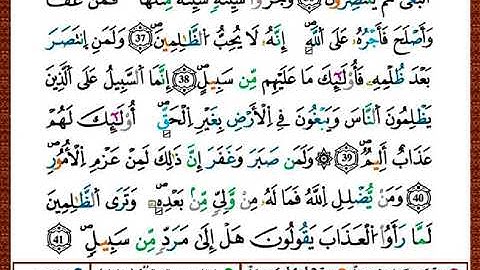 وَأَصْلَحَ فَأَجْرُهُۥ عَلَى اَ۬للَّهِ إِنَّهُۥ لَا يُحِبُّ اُ۬لظَّٰلِمِينَ 37 وَلَمَنِ اِ۪نتَصَرَ
بَعْدَ ظُلْمِهِۦ فَأُوْلَٰٓئِكَ مَا عَلَيْهِم مِّن سَبِيلٍ 38 اِنَّمَا اَ۬لسَّبِيلُ عَلَى اَ۬لَّذِينَ
يَظْلِمُونَ اَ۬لنَّاسَ وَيَبْغُونَ فِے اِ۬لْأَرْضِ بِغَيْرِ اِ۬لْحَقِّ أُوْلَٰٓئِكَ لَهُمْ
عَذَابٌ أَلِيمٌ 39 وَلَمَن صَبَرَ وَغَفَرَ إِنَّ ذَٰلِكَ لَمِنْ عَزْمِ اِ۬لْأُمُورِ
40 وَمَنْ يُّضْلِلِ اِ۬للَّهُ فَمَا لَهُۥ مِنْ وَّلِيٍّ مِّنۢ بَعْدِهِۦ وَتَرَى اَ۬لظَّٰلِمِينَ
لَمَّا رَأَوُاْ اُ۬لْعَذَابَ يَقُولُونَ هَلْ إِلَىٰ مَرَدٍّ مِّن سَبِيلٍ 41